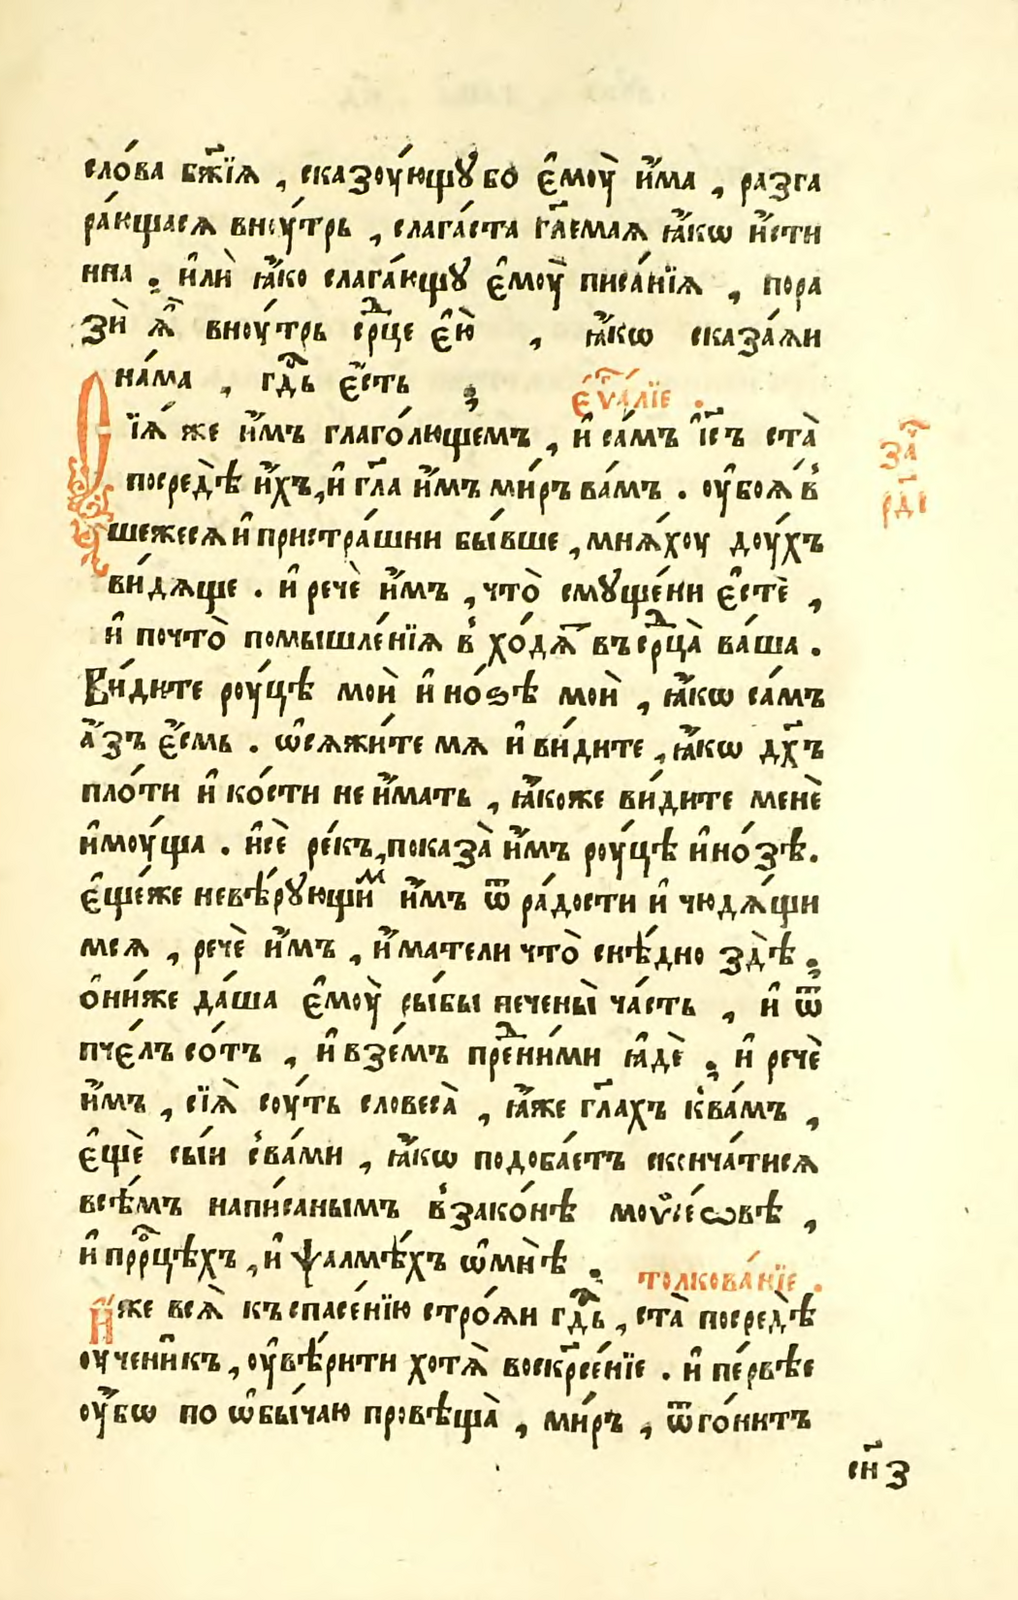 сло́ва бж҃їѧ , сказоу́ющꙋ бо є҆моу̀ и҆́ма , разга
ра́ющаесѧ вноу́трь , слага́ста гл҃емаѧ ꙗ҆́кѡ и҆́сти
нна . и҆лѝ ꙗ҆́ко слага́ющꙋ є҆моу̀ писа́нїѧ , пора
зѝ ѧ҆̀ вноу́трь срⷣце є҆ю̀ , ꙗ҆́кѡ сказа́ѧи
на́ма , гдⷭ҇ь є҆́сть ;
є҆ѵⷢ҇а́лїе .
Сїѧ́ же и҆́мъ глаго́лющемъ , и҆ са́мъ і҆с҃ъ ста̀
посредѣ̀ и҆́хъ , и҆ гл҃а и҆́мъ ми́ръ ва́мъ . оу҆боѧ́в
шежесѧ и҆ пристра́шни бы́вше , мнѧ́хоу доу́хъ
ви́дѧще . и҆ речѐ и҆́мъ , что̀ смꙋще́ни є҆стѐ ,
и҆ почто̀ помышле́нїѧ в̾ хо́дѧⷮ въ срⷣца̀ ва́ша .
Ви́дите роу́цѣ моѝ и҆ но́ѕѣ моѝ , ꙗ҆́кѡ са́мъ
а҆́зъ є҆́смь . ѡ҆сѧжи́те мѧ и҆ ви́дите , ꙗ҆́кѡ дх҃ъ
пло́ти и҆ ко́сти не и҆́мать , ꙗ҆́коже ви́дите менѐ
и҆моу́ща . и҆сѐ ре́къ , показа̀ и҆́мъ роу́цѣ и҆ но́зѣ .
є҆ще́же невѣ́рꙋющиⷨ и҆́мъ ѿ ра́дости и҆ чюдѧ́щи
мсѧ , речѐ и҆́мъ , и҆́матели что̀ снѣ́дно здѣ̀ ;
ѻ҆ни́же да́ша є҆моу̀ ры́бы печены̀ ча́сть , и҆ ѿ
пчє́лъ со́тъ , и҆ взе́мъ преⷣни́ми ꙗ҆дѐ ; и҆ речѐ
и҆́мъ , сїѧ̀ соу́ть словеса̀ , ꙗ҆́же гл҃ахъ к̾ва́мъ ,
є҆щѐ сы́и с̾ва́ми , ꙗ҆́кѡ подоба́етъ сконча́тисѧ
всѣ́мъ напи́санымъ в̾зако́нѣ моѵ̈се́ѡвѣ ,
и҆ прⷪ҇ро́цѣхъ , и҆ ѱалмѣ́хъ ѡ҆мнѣ̀ .
толкова́нїе .
И҆́же всѧ̀ къ спасе́нїю стро́ѧи гдⷭ҇ь , ста̀ посредѣ̀
оу҆чени́къ , оу҆вѣ́рити хотѧ̀ воскрⷭ҇е́нїе . и҆ пе́рвѣе
оу҆́бѡ по ѡ҆бы́чаю провѣща̀ , ми́ръ , ѿго́нитъ
заⷱ҇
рд҃і
сн҃з